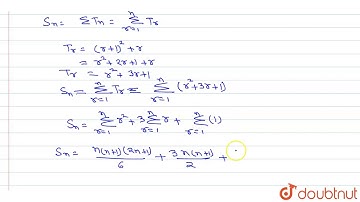 Sn = ΣTn = Σ_{r=1}^{n} Tr
Tr = (r+1)² + r
= r² + 2r + 1 + r
Tr = r² + 3r + 1
Sn = Σ_{r=1}^{n} Tr = Σ_{r=1}^{n} (r² + 3r + 1)
Sn = Σ_{r=1}^{n} r² + 3 Σ_{r=1}^{n} r + Σ_{r=1}^{n} (1)
Sn = n(n+1)(2n+1)/6 + 3n(n+1)/2 +
doubtnut